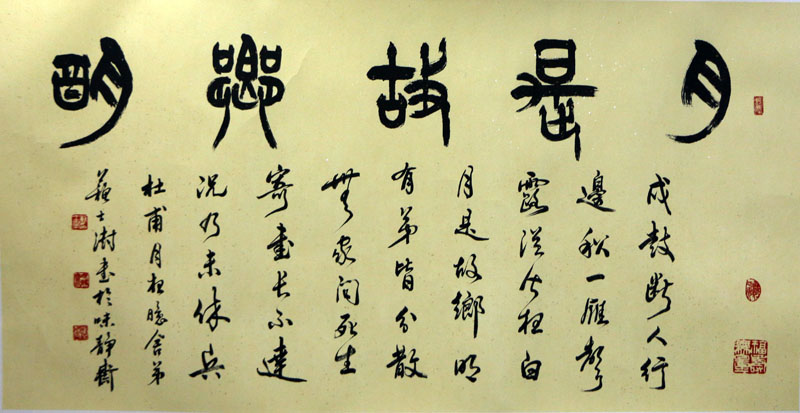 月是故鄉明
戍鼓斷人行
邊秋一雁聲
露從今夜白
月是故鄉明
有弟皆分散
無家問死生
寄書長不達
況乃未休兵
杜甫月夜憶舍弟
蘇士澍書於味靜齋